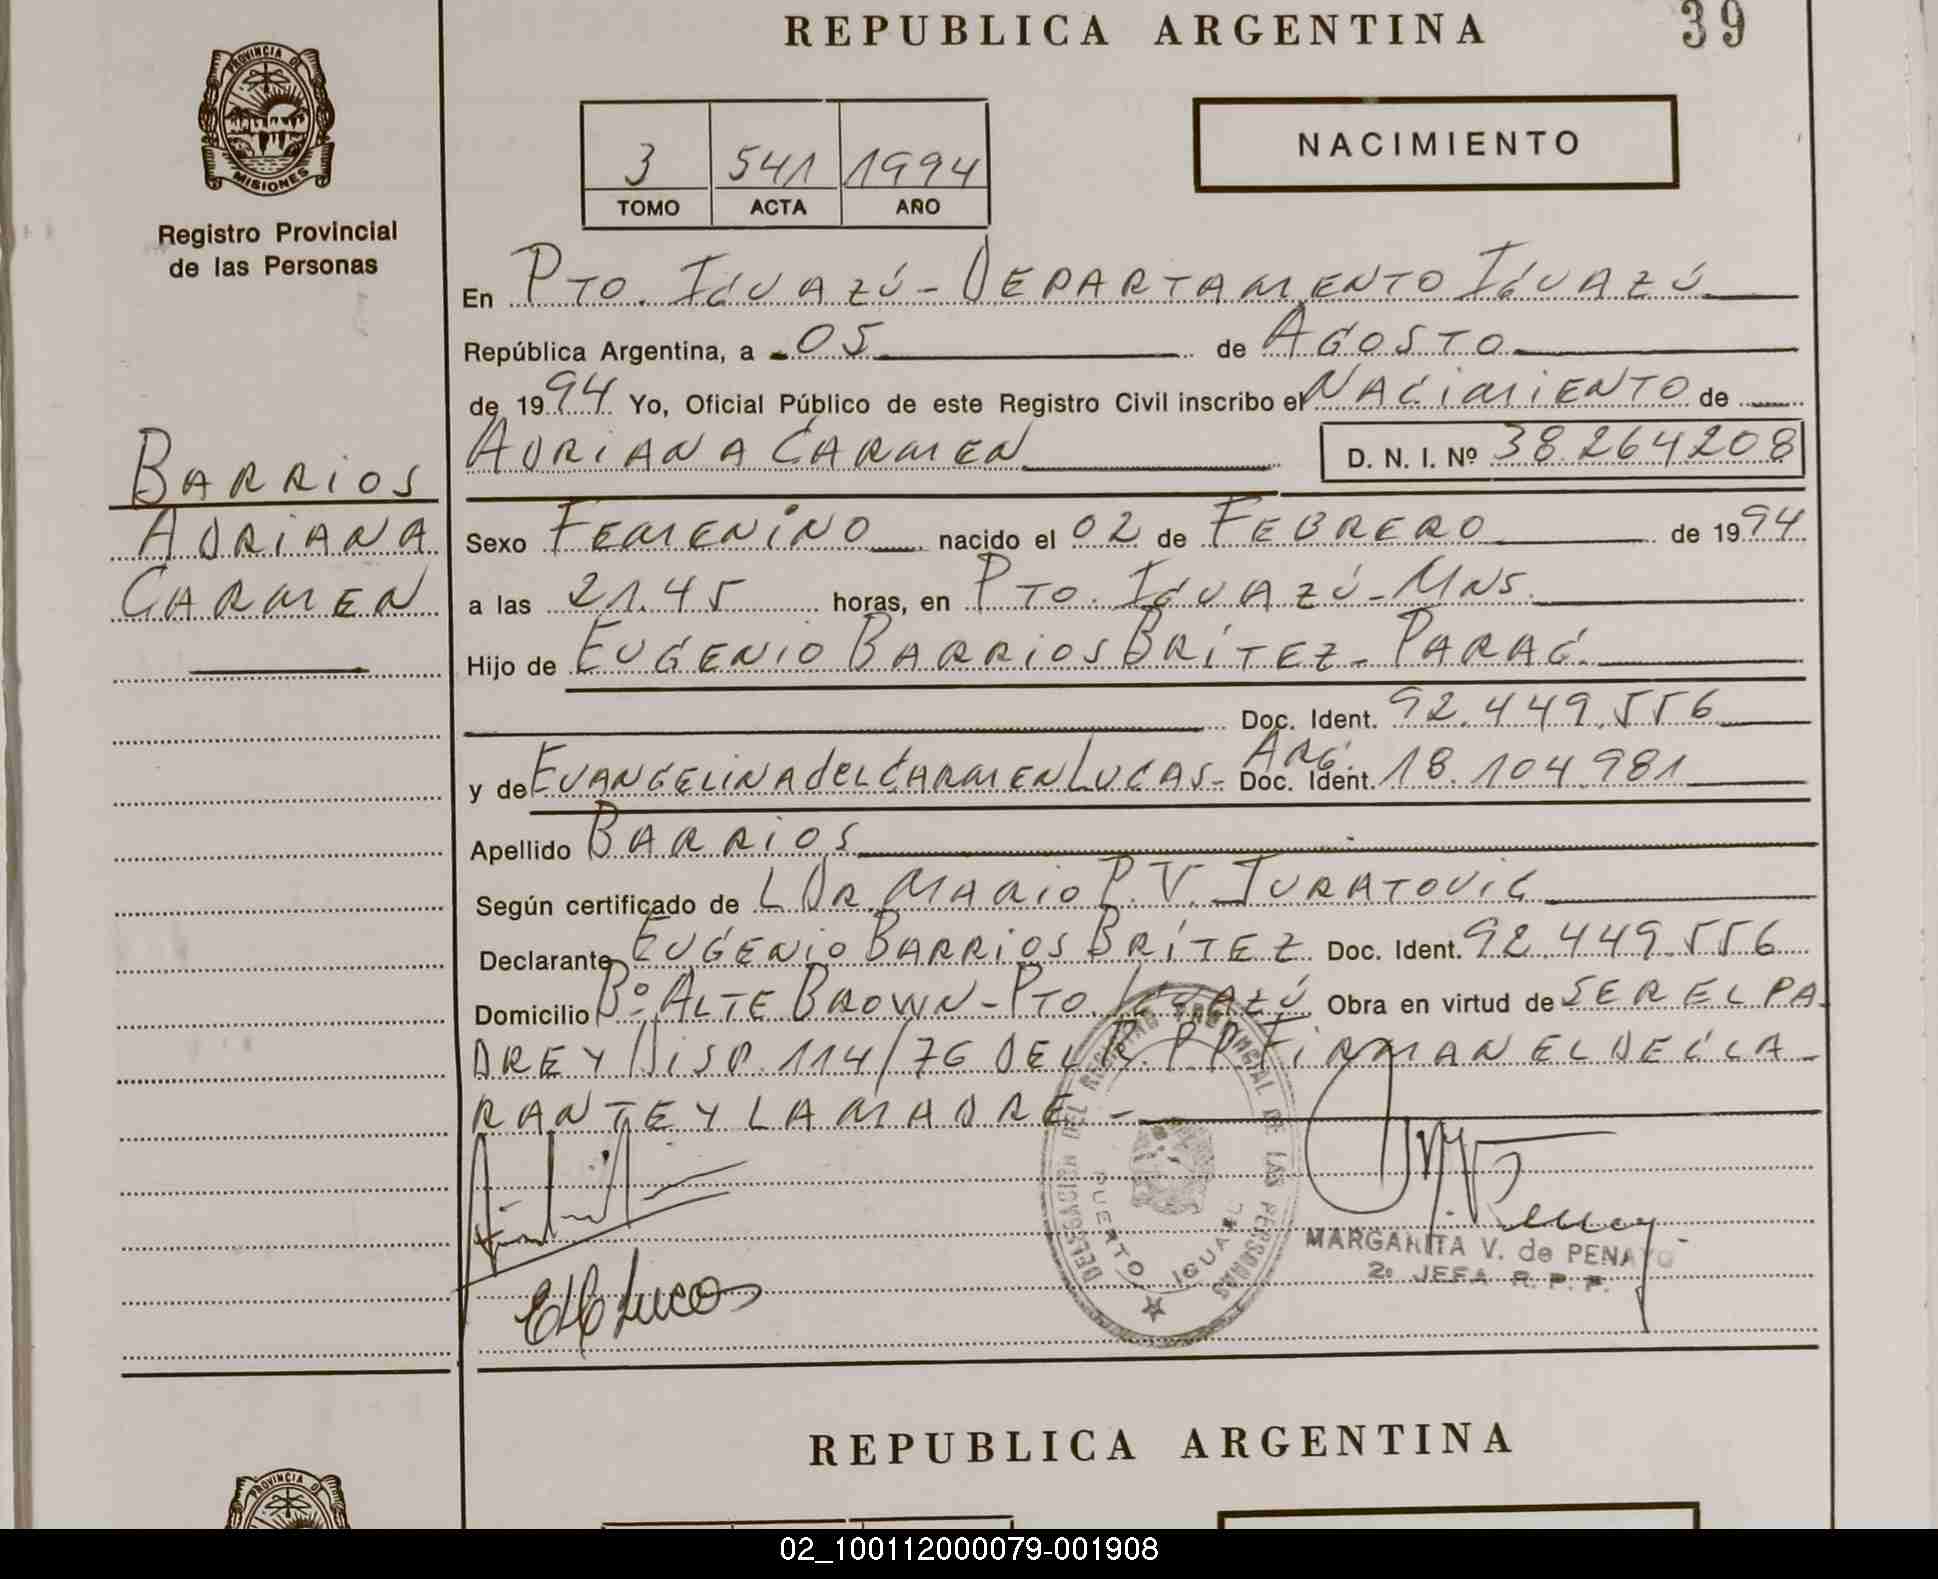 REPUBLICA ARGENTINA 39
PROVINCIA DE MISIONES
Registro Provincial
de las Personas
NACIMIENTO
3 541 1994
TOMO ACTA AÑO
En PTO. IGUAZÚ - DEPARTAMENTO IGUAZÚ
República Argentina, a 05 de AGOSTO
de 1994 Yo, Oficial Público de este Registro Civil inscribo el NACIMIENTO de
ADRIANA CARMEN D. N. I. Nº 38.264.208
BARRIOS
ADRIANA
CARMEN
Sexo FEMENINO nacido el 02 de FEBRERO de 1994
a las 21.45 horas, en PTO. IGUAZÚ - MNS.
Hijo de EUGENIO BARRIOS BRÍTEZ - PARAG.
Doc. Ident. 92.449.556
y de EVANGELINA del CARMEN LUCAS - ARG. Doc. Ident. 18.104.981
Apellido BARRIOS
Según certificado de L DR. MARIO P. V. JURATOVIC
Declarante EUGENIO BARRIOS BRÍTEZ Doc. Ident. 92.449.556
Domicilio Bº ALTE BROWN - PTO IGUAZÚ Obra en virtud de SER EL PA-
DRE Y DISP. 114/76 DEL R. P. P. FIRMAN EL DECLA-
RANTE Y LA MADRE -
DELEGACION DEL REGISTRO PROVINCIAL DE LAS PERSONAS
PUERTO IGUAZU
E del C Lucas
MARGARITA V. de PENAYO
2º JEFA R. P. P.
REPUBLICA ARGENTINA
PROVINCIA DE
02_100112000079-001908